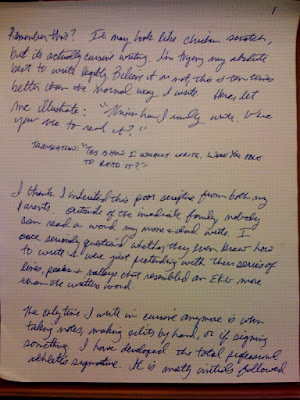 1
Remember this? It may look like chicken scratch,
but its actually cursive writing. I'm trying my absolute
best to write legibly. Believe it or not, this is ten times
better than the normal way I write. Here, let
me illustrate: "This is how I usually write. Were
you able to read it?"
TRANSLATION: "THIS IS HOW I USUALLY WRITE. WERE YOU ABLE
TO READ IT?"
I think I inherited this poor scripture from both my
parents. Outside of the immediate family, nobody
can read a word my mom & dad write. I
once seriously questioned whether they even knew how
to write & were just pretending with their series of
lines, peaks & valleys that resembled an EKG more
than the written word.
The only time I write in cursive anymore is when
taking notes, making edits by hand, or if signing
something. I have developed the total professional
athlete's signature. It is mostly initials followed